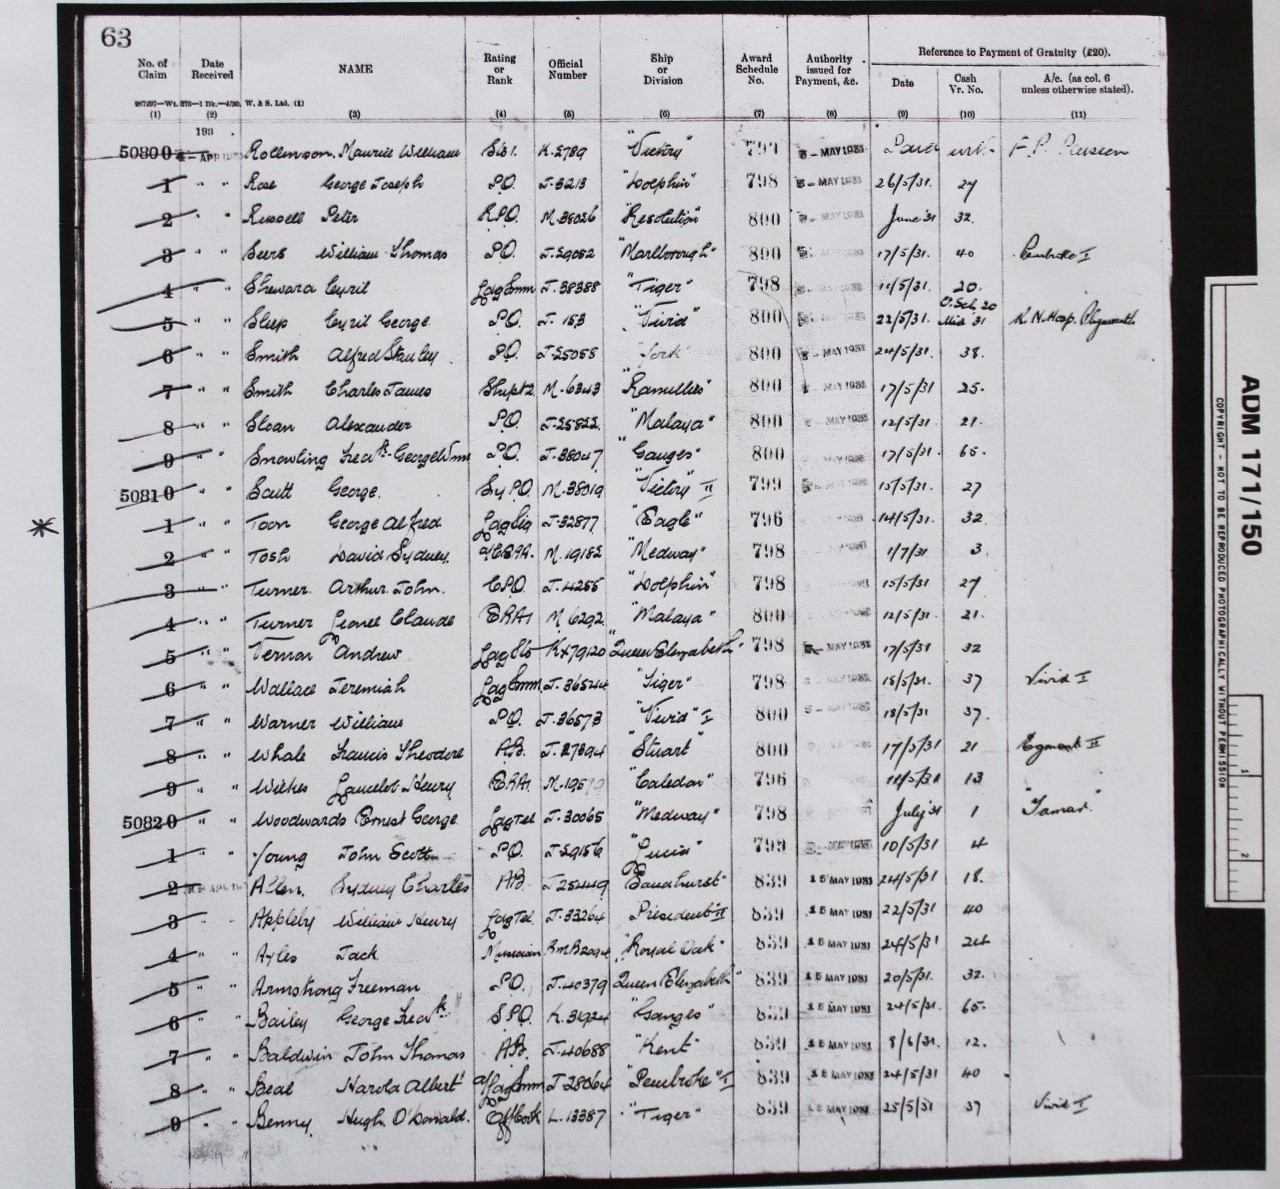 63
Reference to Payment of Gratuity (£20).
No. of Claim Date Received NAME Rating or Rank Official Number Ship or Division Award Schedule No. Authority issued for Payment, &c. Date Cash Vr. No. A/c. (as col. 6 unless otherwise stated).
W. & S. Ltd. (1)
(1) (2) (3) (4) (5) (6) (7) (8) (9) (10) (11)
193
50800 Rollinson, Maurice William K.2789 "Victory" 799 MAY 1931 Paid F.P. Pension
1 " " Rose George Joseph P.O. J.3213 "Dolphin" 798 MAY 1931 26/5/31. 27
2 " " Russell Peter R.P.O. M.38026 "Resolution" 800 MAY 1931 June '31 32.
3 " " Seers William Thomas P.O. J.29052 "Marlborough" 800 MAY 1931 17/5/31. 40 Pembroke I
4 " " Cyril J.38388 "Tiger" 798 MAY 1931 20.
5 " " Sleep Cyril George P.O. J.153 "Vivid" 800 22/5/31. 31 R.N. Hosp. Plymouth
6 " " Smith Alfred Stanley P.O. J.25055 "York" 800 MAY 1931 24/5/31. 38.
7 " " Smith Charles James Shipt 2 M.6343 "Ramillies" 800 MAY 1931 17/5/31 25.
8 " " Sloan Alexander P.O. J.25822 "Malaya" 800 MAY 1931 12/5/31. 21.
9 " " Snowling Fredk. George Wm P.O. J.38047 "Ganges" 800 MAY 1931 17/5/31. 65.
50810 " " Scutt George. Sy P.O. M.38019 "Victory" II 799 MAY 1931 15/5/31. 27
* 1 " " Toon George Alfred Ldg Sig J.32877 "Eagle" 796 14/5/31. 32.
2 " " Tosh David Sydney. M.19152 "Medway" 798 1/7/31 3.
3 " " Turner. Arthur John. C.P.O. J.4255 "Dolphin" 798 15/5/31 27
4 " " Turner Lionel Claude ERA1 M.6292 "Malaya" 800 12/5/31 21.
5 " " Vernon Andrew Ldg Sto "Queen Elizabeth" 798 MAY 1931 17/5/31 32
6 " " Wallace Jeremiah J.36544 "Tiger" 798 MAY 1931 15/5/31. 37 Vivid I
7 " " Warner William P.O. J.36573 "Vivid" I 800 18/5/31. 37.
8 " " Whale Francis Theodore A.B. J.27894 "Stuart" 800 17/5/31 21 Egmont II
9 " " Wilkes Lancelot Henry ERA1 "Caledon" 796 13
50820 " " Woodwards Ernest George Ldg Tel J.30065 "Medway" 798 July '31 1 "Tamar."
1 " " Young John Scott P.O. J.29156 "Lucia" 799 MAY 1931 10/5/31 4
2 Allen. Sydney Charles A.B. J.25449 "Sandhurst" 839 15 MAY 1931 24/5/31 18.
3 " Appleby William Henry Ldg Tel. J.33264 "President" II 839 15 MAY 1931 22/5/31 40
4 " " Ayles Jack. Musician R.M.B.2094 "Royal Oak" 839 15 MAY 1931 24/5/31 24
5 " " Armstrong Freeman P.O. J.40379 "Queen Elizabeth" 839 15 MAY 1931 20/5/31. 32.
6 " " Bailey George Fredk. S.P.O. K.31924 "Ganges" 839 15 MAY 1931 24/5/31. 65.
7 " " Baldwin John Thomas A.B. J.40688 "Kent" 839 15 MAY 1931 8/6/31. 12.
8 " " Beal Harold Albert J.28064 "Pembroke" I 839 15 MAY 1931 24/5/31 40
9 " " Benny Hugh O'Donald. L.13387 "Tiger" 839 15 MAY 1931 25/5/31 37 Vivid I
ADM 171/150
COPYRIGHT - NOT TO BE REPRODUCED PHOTOGRAPHICALLY WITHOUT PERMISSION
1
2